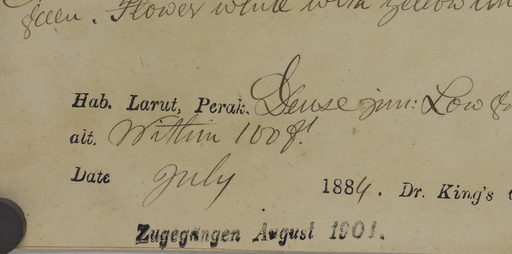 green. Flower white with yellow
Hab. Larut, Perak. Dense jun: Low
alt. Within 100 ft
Date July 1884. Dr. King's
Zugegangen August 1901.